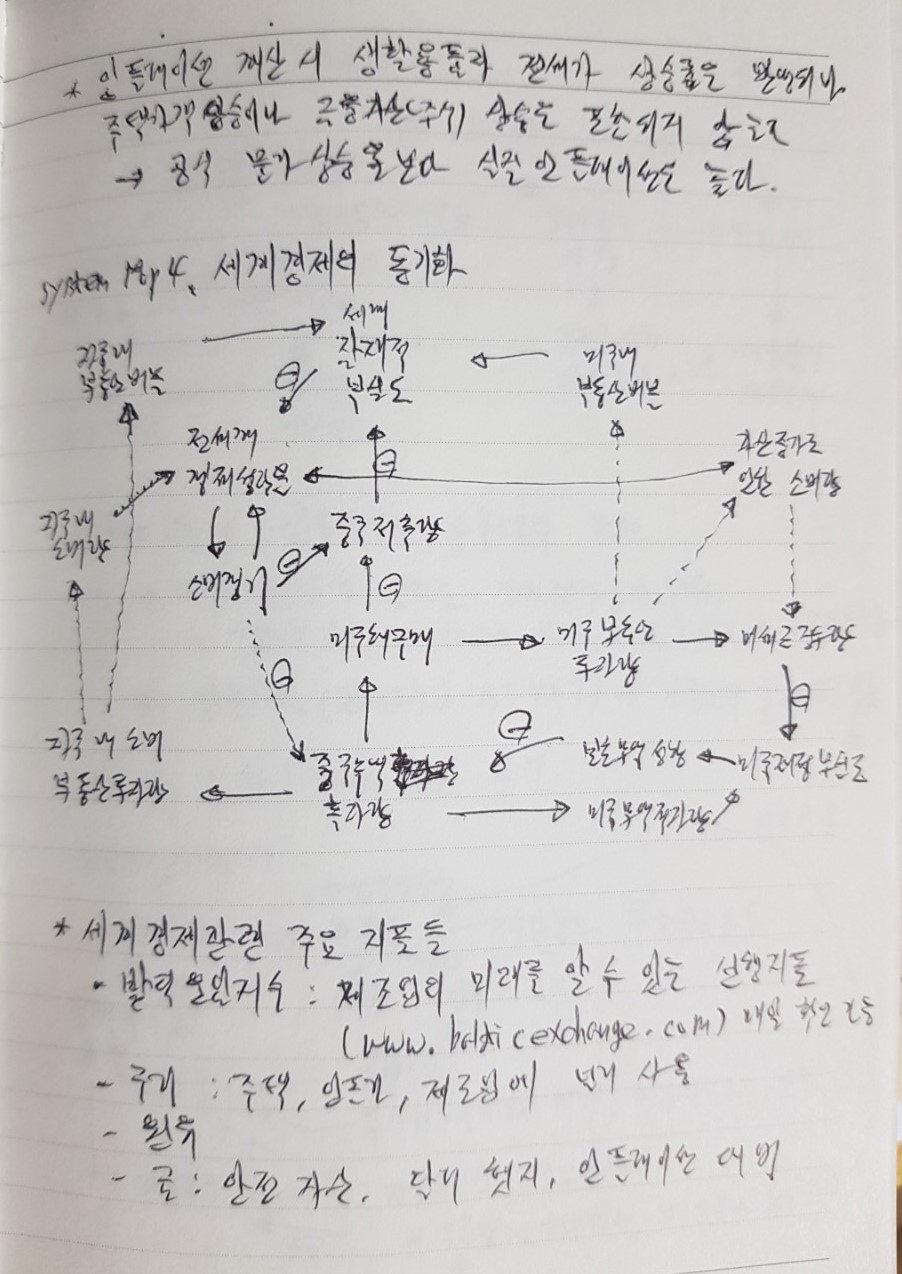 * 인플레이션 계산 시 생활용품과 전세가 상승률은 반영되나
주택가격 상승이나 금융자산(주식) 상승은 포함되지 않는다
→ 공식 물가상승율보다 실질 인플레이션은 높다.
system Map 4. 세계경제의 동기화
세계
잠재적
부실도
중국내
부동산버블
미국내
부동산버블
전세계
경제성장율
자산증가로
인한 소비량
중국내
소비량
중국저축량
소비경기
미국채구매
미국 부동산
투자량
미채권 공급량
중국 내 소비
부동산투자량
중국무역
흑자량
보호무역 성향
미국재정 부실도
미국무역적자량
* 세계경제관련 주요 지표들
- 발틱운임지수 : 제조업의 미래를 알 수 있는 선행지표
(www.balticexchange.com) 매일 확인 가능
- 구리 : 주택, 인프라, 제조업에 널리 사용
- 원유
- 금 : 안전 자산, 달러 헷지, 인플레이션 대비